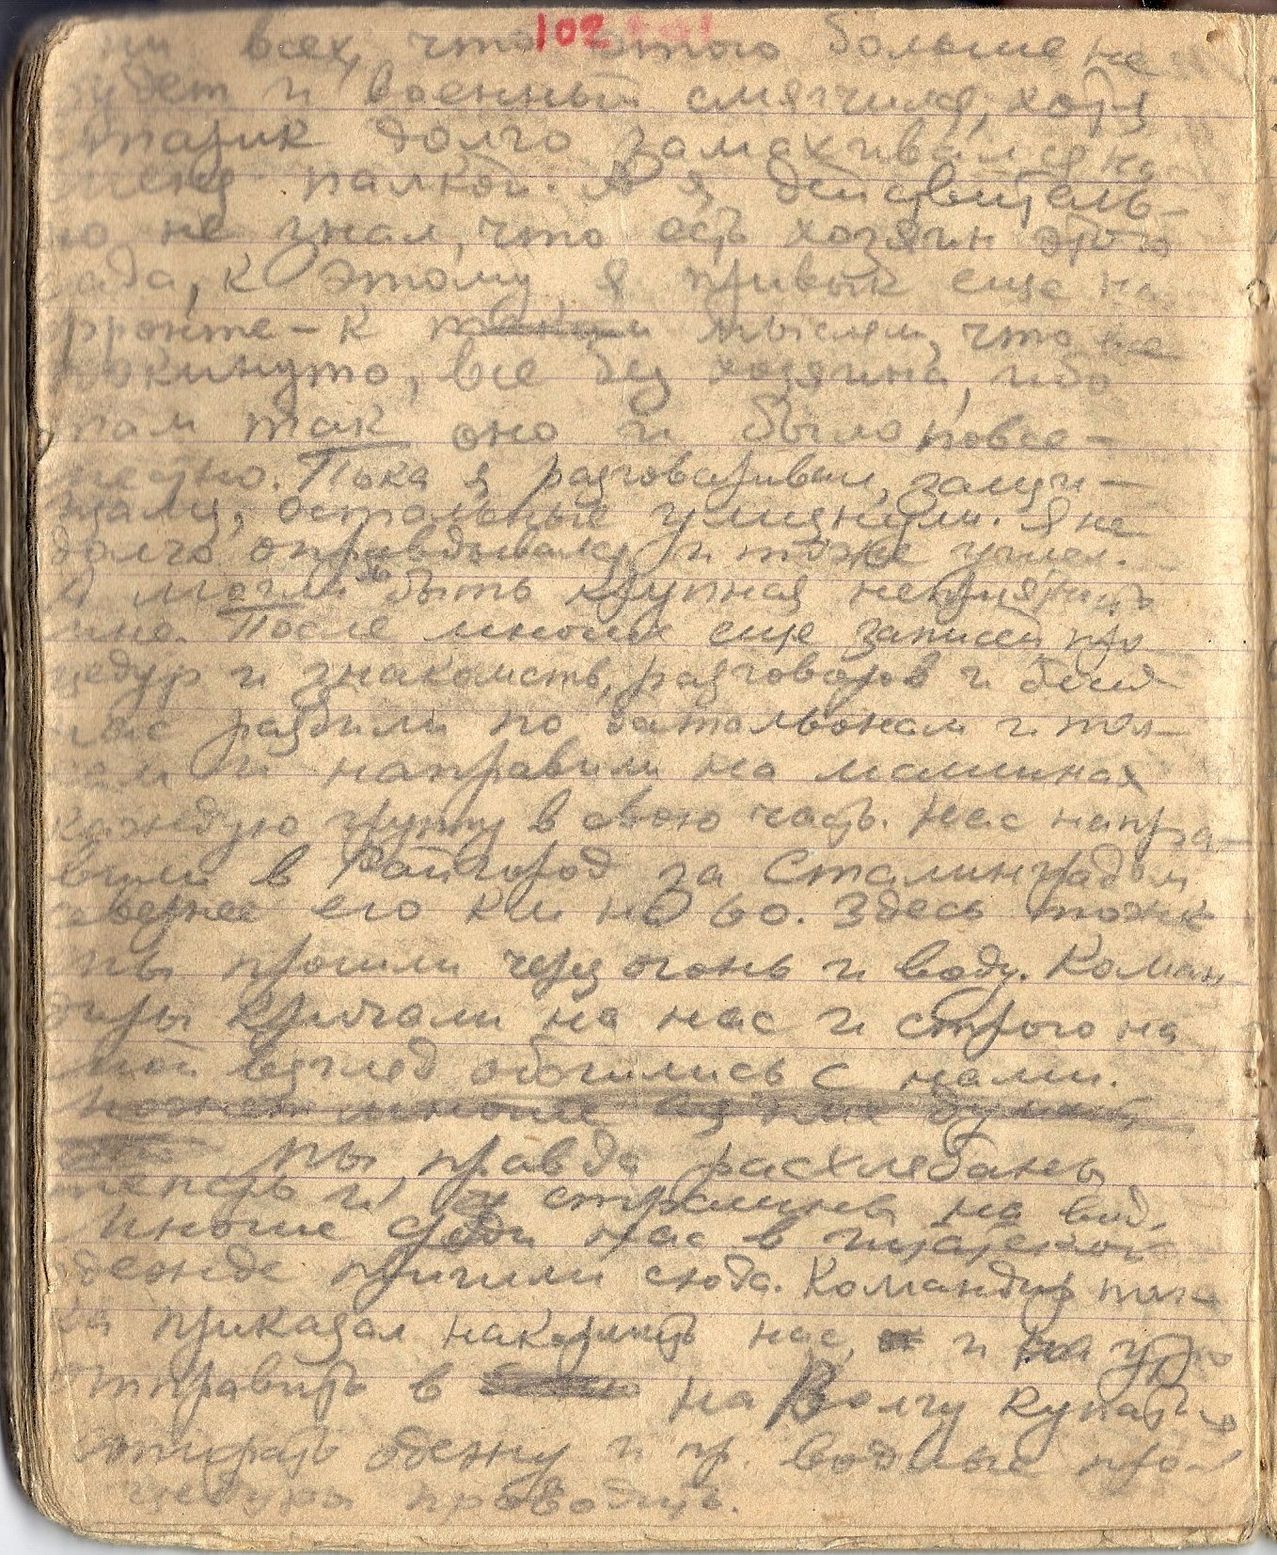 102
ни всех, что этого больше не
будет и военный смягчился, хотя
старик долго замахивался на
меня палкой. А я действитель-
но не знал, что есть хозяин этого
сада, к этому я привык еще на
фронте – к таким мыслям, что все
покинуто, все без хозяина, ибо
там так оно и было повсе-
местно. Пока я разговаривал, защи-
щался, остальные улизнули. Я не
долго оправдывался и тоже ушел.
А могла бы быть крупная неприятность
мне. После многих еще записей, про
цедур и знакомств, разговоров и бесед
нас разбили по батальонам и пол-
кам и направили на машинах
каждую группу в свою часть. Нас напра-
вили в Райгород за Сталинградом
севернее его км на 60. Здесь тоже
мы прошли через огонь и воду. Коман-
диры кричали на нас и строго на
мой взгляд обогились с нами.
Может многие из них думают,
что Мы, правда расхлябаны
теперь и, и страшны на вид.
Многие среди нас в гражданской
одежде пришли сюда. Командир полка
приказал накормить нас, и на утро
отправить в на Волгу купаться
стирать одежу и пр. водные про
цедуры проводить.